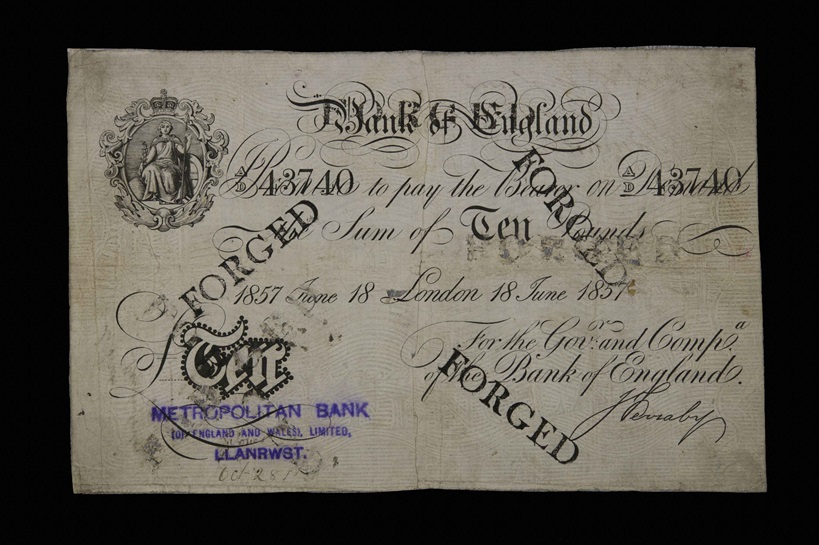 Bank of England
A/D 43740 to pay the Bearer on Demand A/D 43740
Sum of Ten Pounds
FORGED
FORGED
FORGED
FORGED
1857 June 18 London 18 June 1857
For the Govr. and Compa.
of the Bank of England.
£Ten
METROPOLITAN BANK
(OF ENGLAND AND WALES), LIMITED,
LLANRWST.
Oct 28